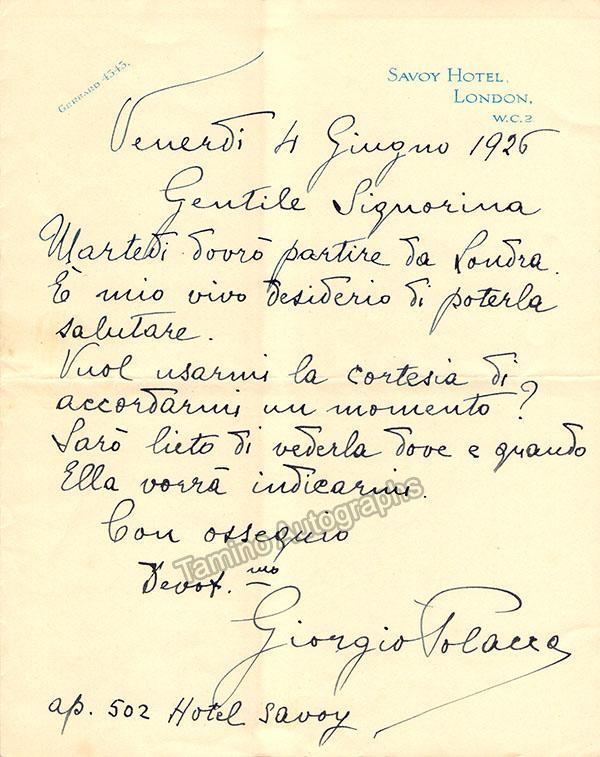 GERRARD 4343.
SAVOY HOTEL,
LONDON,
W.C.2
Venerdì 4 Giugno 1926
Gentile Signorina
Martedì dovrò partire da Londra.
È mio vivo desiderio di poterla
salutare.
Vuol usarmi la cortesia di
accordarmi un momento?
Sarò lieto di vederla dove e quando
Ella vorrà indicarmi.
Con ossequio
Devot.mo
Giorgio Polacco
ap. 502 Hotel Savoy
Tamino Autographs